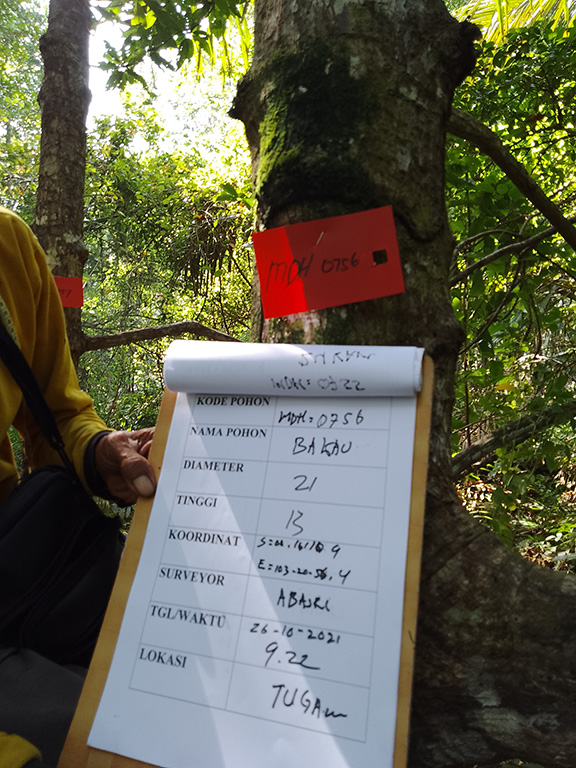 MDH 0756
KODE POHON MDH = 0756
NAMA POHON BAKAU
DIAMETER 21
TINGGI 13
KOORDINAT
E = 103-20-56,4
SURVEYOR
TGL/WAKTU 26-10-2021
9.22
LOKASI